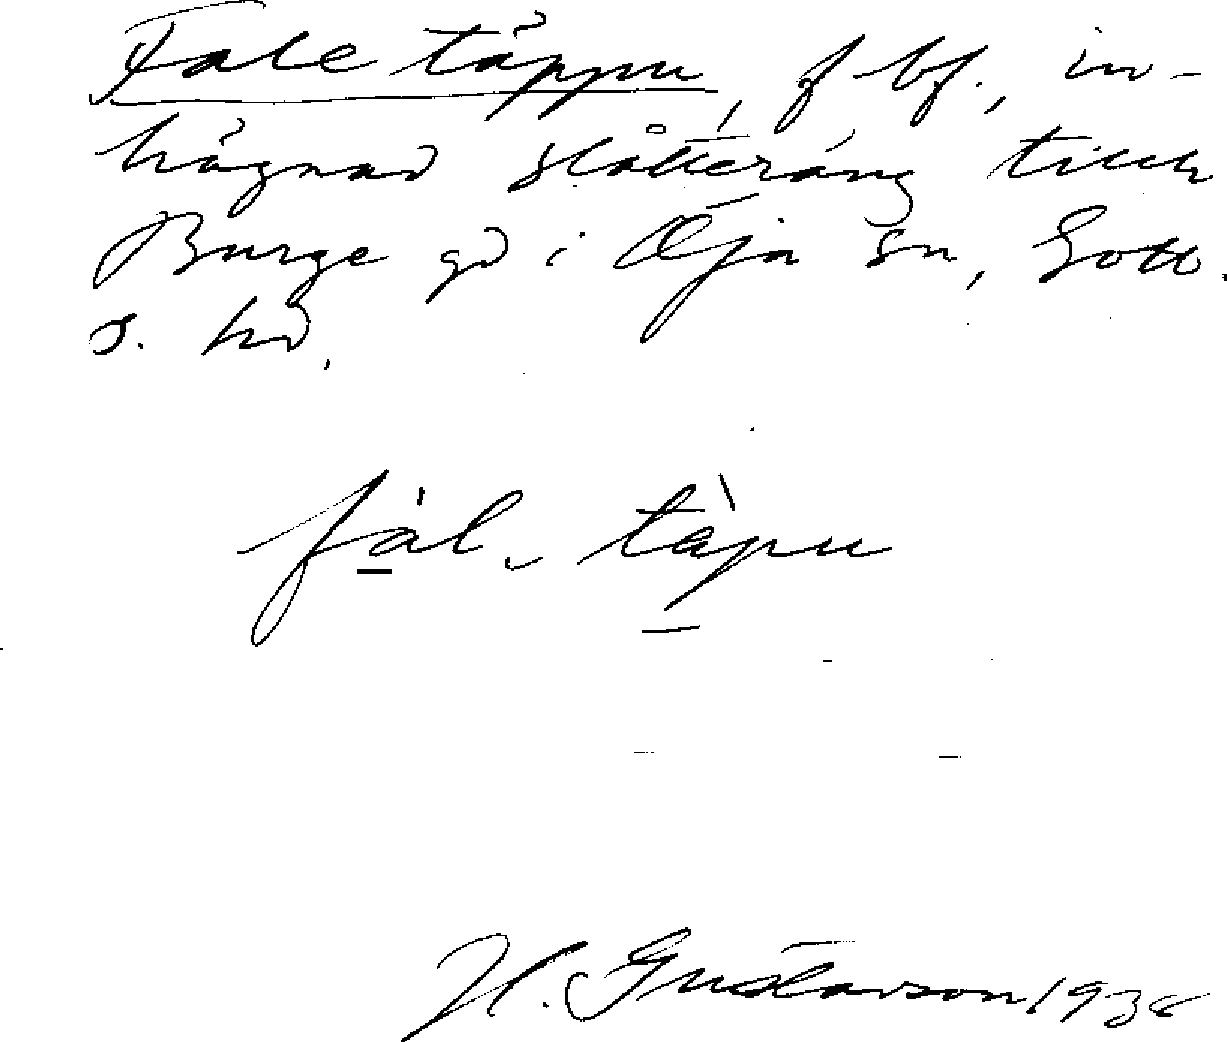 Fale täppu, f bf., in-
hägnad slåtteräng tillh
Burge gd i Öja sn, Gotl.
s. hd.
fàl- tàpu
H. Gustavson 1938